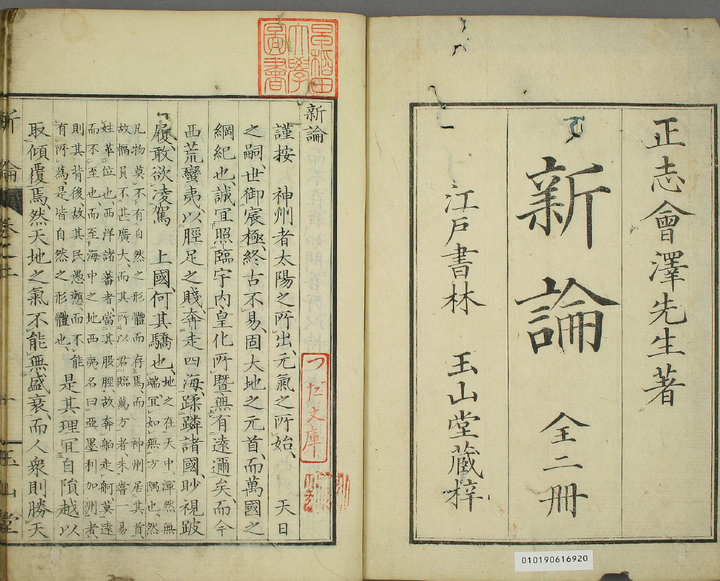 正志會澤先生著
新論
全二冊
江戸書林 玉山堂藏梓
010190616920
早稻田大學圖書
つだ文庫
新論
謹按 神州者太陽之所出元氣之所始 天日
之嗣世御宸極終古不易固大地之元首而萬國之
綱紀也誠宜照臨宇內皇化所曁無有遠邇矣而今
西荒蠻夷以脛足之賤奔走四海蹂躙諸國眇視跛
履敢欲凌駕 上國何其驕也
地之在天中渾然無
端宜如無方隅也然
凡物莫不有自然之形體而存焉而 神州居其首
故幅員不甚廣大而其所以君臨萬方者未嘗一易
姓革位也西洋諸蕃者當其股脛故奔舶走舸莫遠
而不至也而至海中之地西夷名曰亞墨利加洲者
則其背後故其民愚戇而不能
有所為是皆自然之形體也
是其理宜自隕越以
取傾覆焉然天地之氣不能無盛衰而人衆則勝天
新論 卷之上
玉山堂